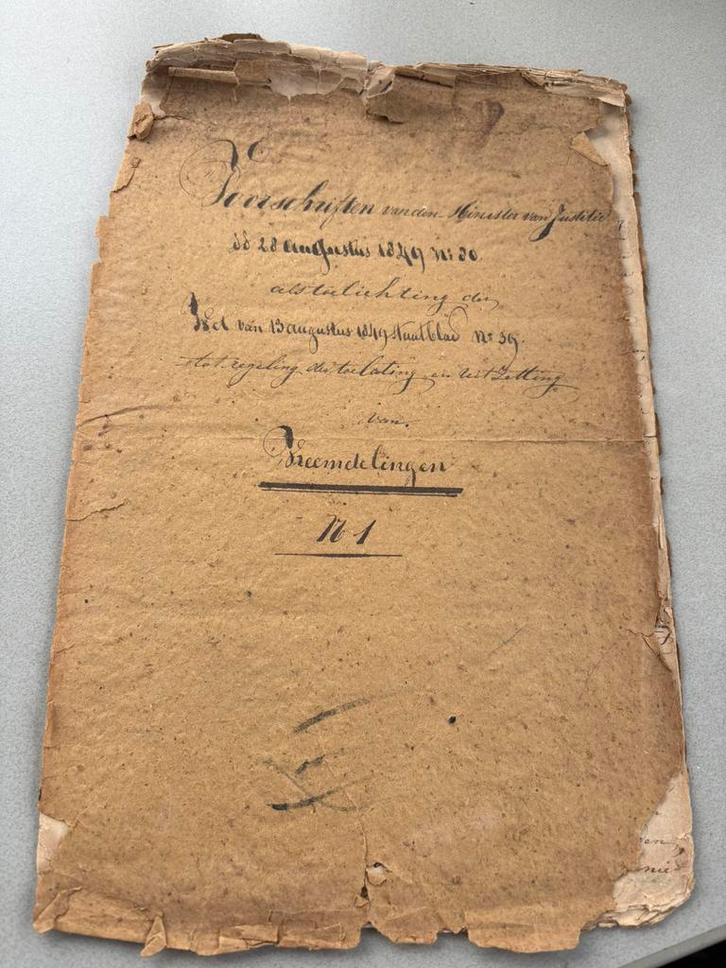 Voorschriften van den Minister van Justitie
dd 28 augustus 1849 No 30
als toelichting der
Wet van 13 augustus 1849 Staatblad No 39.
tot regeling der toelating en uitzetting
van.
Vreemdelingen
N 1
en,
nie